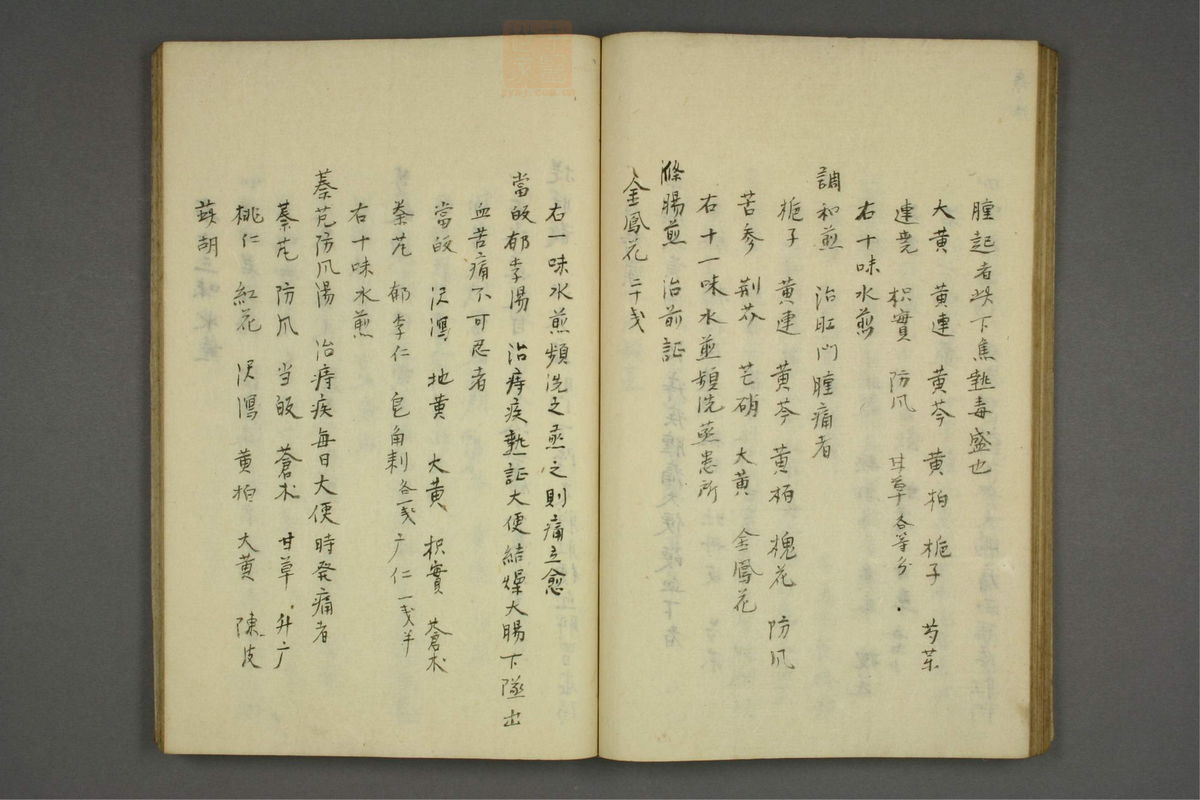 腫起者或下焦熱毒盛也
大黄 黄連 黄芩 黄柏 梔子 芍薬
連堯 枳實 防风 甘草各等分
右十味水煎
調和煎 治肛門腫痛者
梔子 黄連 黄芩 黄栢 槐花 防风
苦参 荊芥 芒硝 大黄 金鳳花
右十一味水煎頻洗蒸患所
滌腸煎 治前証
金鳳花 二十戔
右一味水煎頻洗之蒸之則痛立愈
當皈郁李湯 治痔疾熱証大便結燥大腸下墜出
血苦痛不可忍者
當皈 沢瀉 地黄 大黄 枳實 蒼朮
秦芃 郁李仁 皂角刺各一戔 广仁一戔半
右十味水煎
秦芃防风湯 治痔疾毎日大便時発痛者
秦芃 防风 当皈 蒼朮 甘草 升广
桃仁 紅花 沢瀉 黄柏 大黄 陳皮
胡